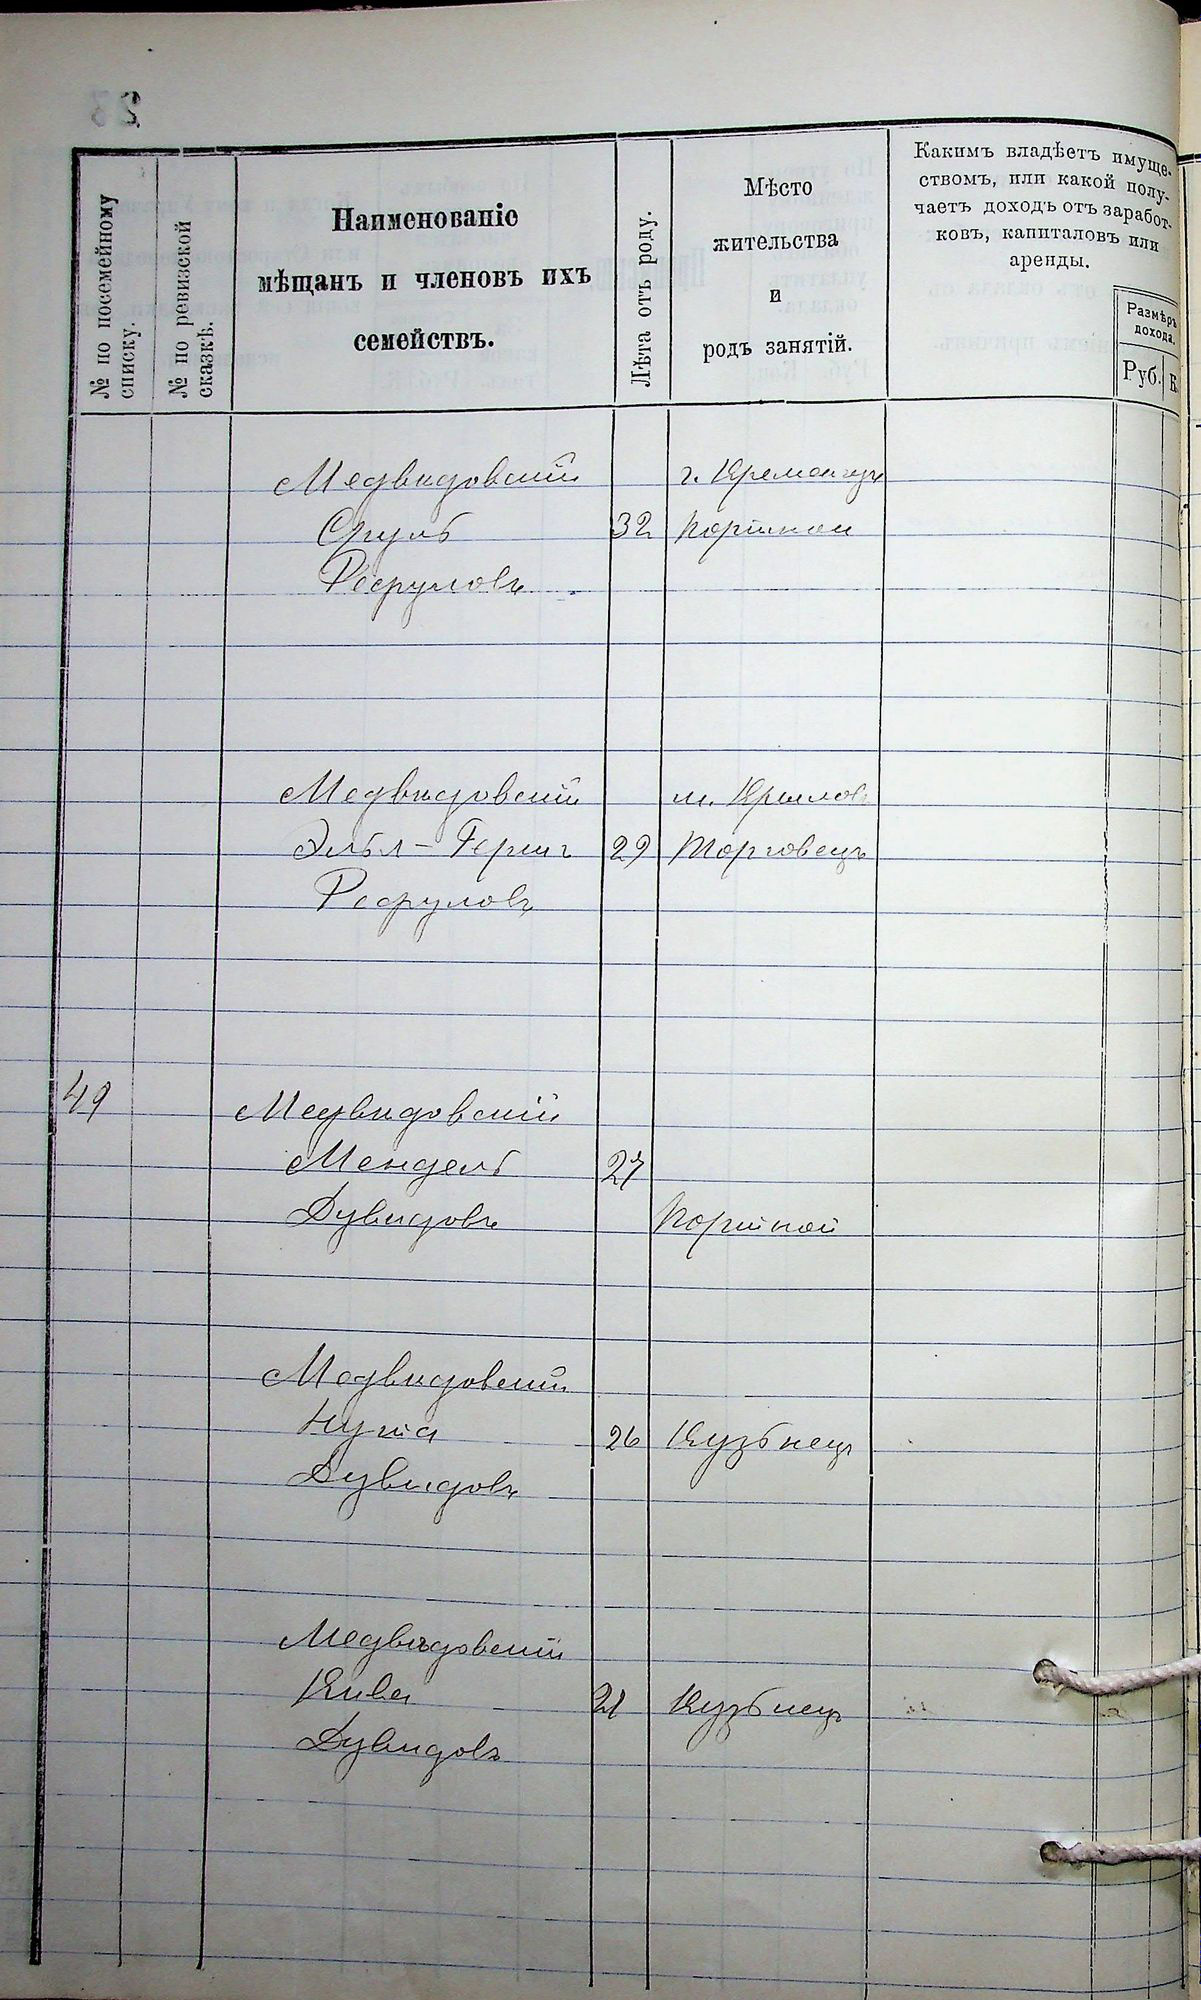 № по посемейному
списку.
№ по ревизской
сказкѣ.
Наименованіе
мѣщанъ и членовъ ихъ
семействъ.
Лѣта отъ роду.
Мѣсто
жительства
и
родъ занятій.
Какимъ владѣетъ имуще-
ствомъ, или какой полу-
чаетъ доходъ отъ заработ-
ковъ, капиталовъ или
аренды.
Размѣръ
дохода.
Руб. К.
Медвидовскій г. Кременчугъ
Сруль 32 Портной
Рефуловъ
Медвидовскій м. Крыловъ
29 Торговецъ
Рефуловъ
49 Медвидовскій
Мендель 27
Дувидовъ Портной
Медвидовскій
Нута 26 Кузнец
Дувидовъ
Медвидовскій
Кива 21 Кузнец
Дувидовъ